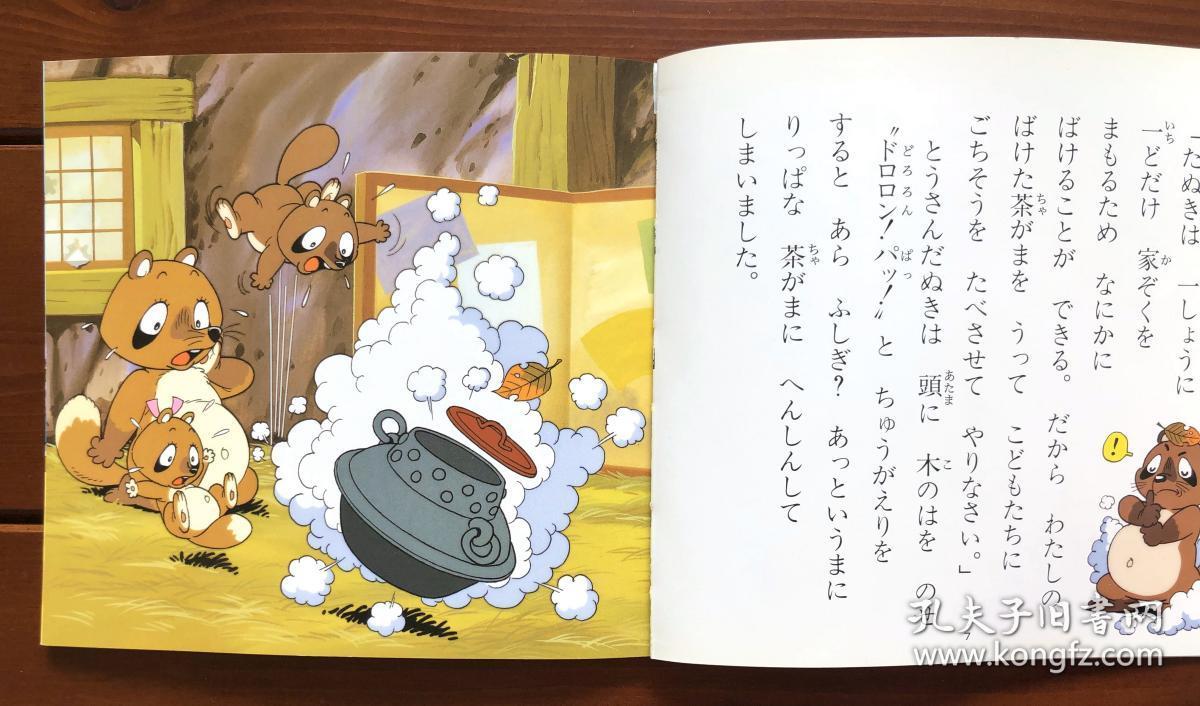 「たぬきは 一しょうに
一どだけ 家ぞくを
まもるため なにかに
ばけることが できる。 だから わたしの
ばけた茶がまを うって こどもたちに
ごちそうを たべさせて やりなさい。」
とうさんだぬきは 頭に 木のはを のせ
〝ドロロン!パッ!〟と ちゅうがえりを
すると あら ふしぎ? あっというまに
りっぱな 茶がまに へんしんして
しまいました。
!
孔夫子旧书网
www.kongfz.com